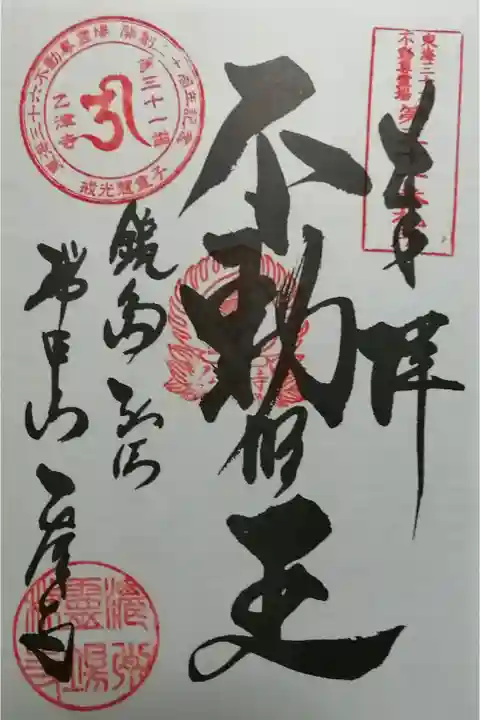 東海三十六
不動尊霊場
奉拝
不動明王
東海三十六不動尊霊場 開創二十周年記念
第三十一番
乙津寺
鏡島弘法
瑞甲山 乙津寺